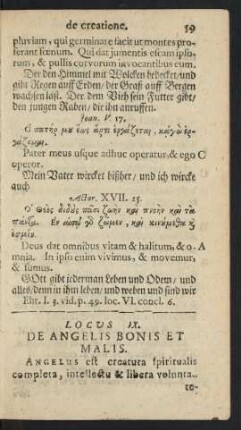 de creatione. 59
pluviam, qui germinare facit ut montes pro-
ferant fœnum. Qui dat jumentis escam ipso-
rum, & pullis corvorum invocantibus eum.
Der den Himmel mit Wolcken bedecket/und
gibt Regen auff Erden/der Graß auff Bergen
wachsen läst. Der dem Vieh sein Futter gibt/
den jungen Raben/die ihn anruffen.
Joan. V. 17.
Ὁ πατήρ μου ἕως ἄρτι ἐργάζεται, κἀγὼ ἐρ-
γάζομαι.
Pater meus usque adhuc operatur, & ego C
operor.
Mein Vater wircket bißher/ und ich wircke
auch
Actor. XVII. 25.
Ὁ Θεὸς διδοὺς πᾶσι ζωὴν καὶ πνοὴν καὶ τὰ
πάντα. Ἐν αὐτῷ ζῶμεν, καὶ κινούμεθα καὶ
ἐσμέν.
Deus dat omnibus vitam & halitum, & o- A
mnia. In ipso enim vivimus, & movemur,
& sumus.
GOtt gibt jederman Leben und Odem/ und
alles/denn in ihm leben/und weben und sind wir
Ebr. I. 3. vid. p. 49. loc. VI. concl. 6.
LOCUS IX.
DE ANGELIS BONIS ET
MALIS.
ANGELUS est creatura spiritualis
completa, intellectu & libera volunta-
te